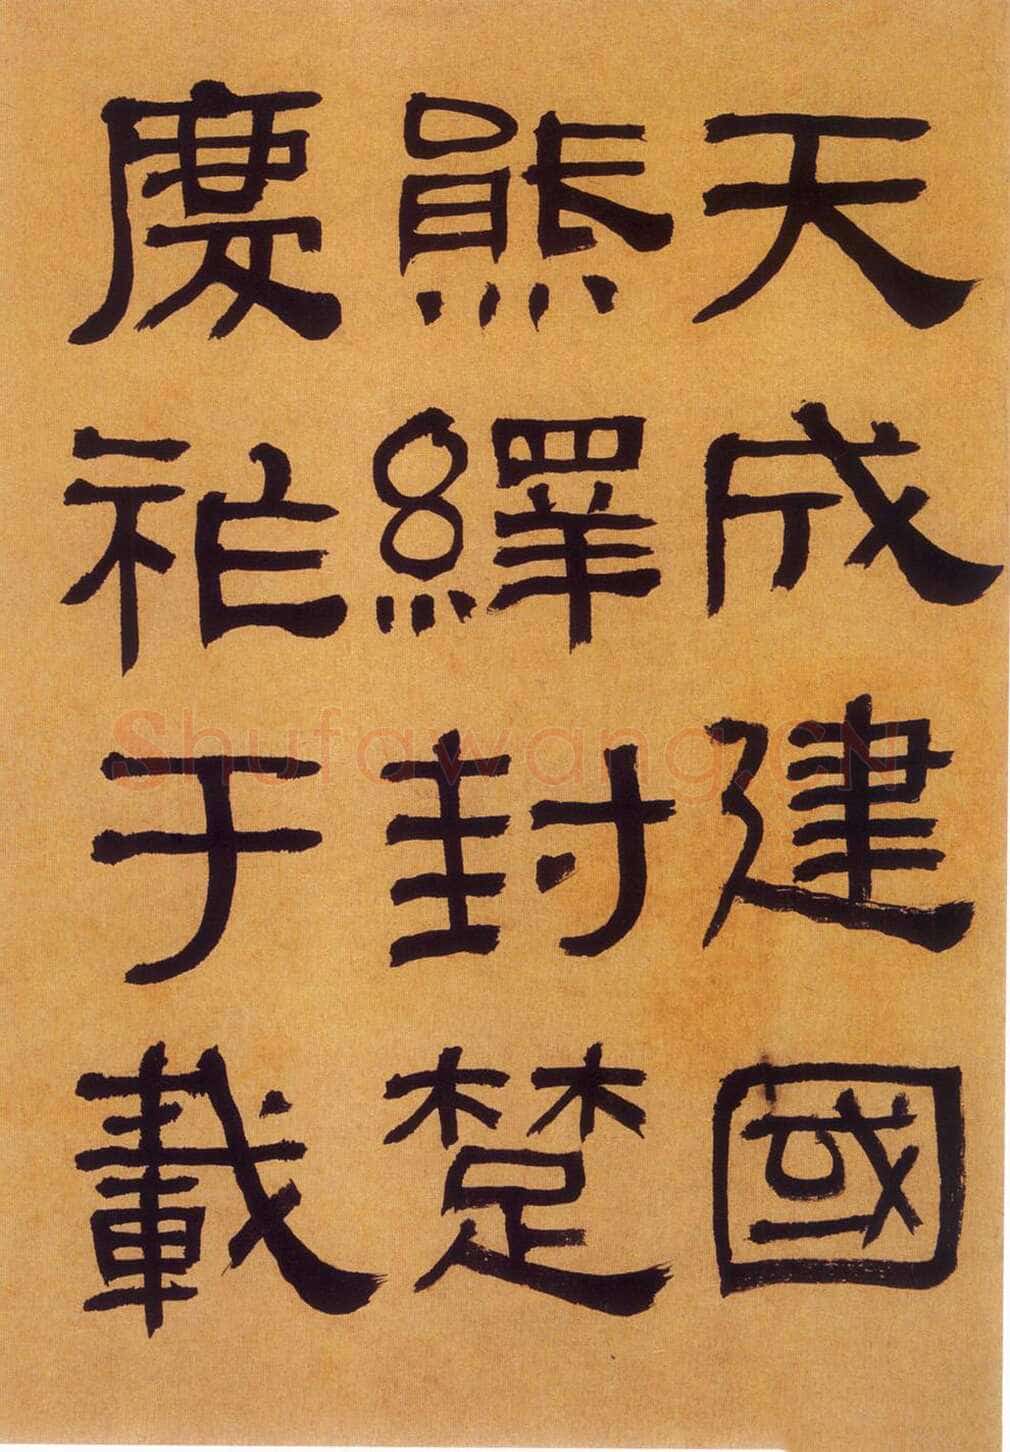 天成建國
熊繹封楚
度祚于載
Shufawang.CN